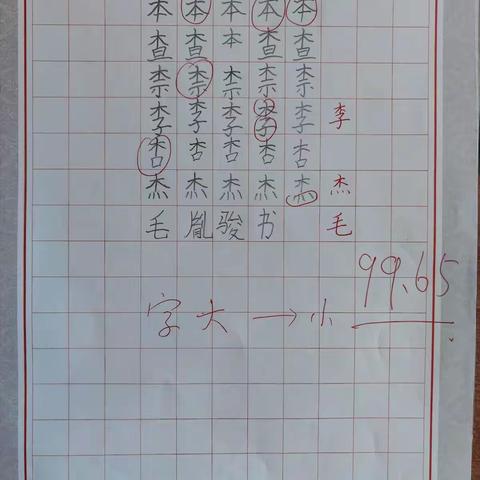 本本本本本
查查本查查
柰柰柰柰柰
李李李李李 李
杏杏杏杏杏
杰杰杰杰杰 杰
毛胤骏书 毛
99.65
字大→小